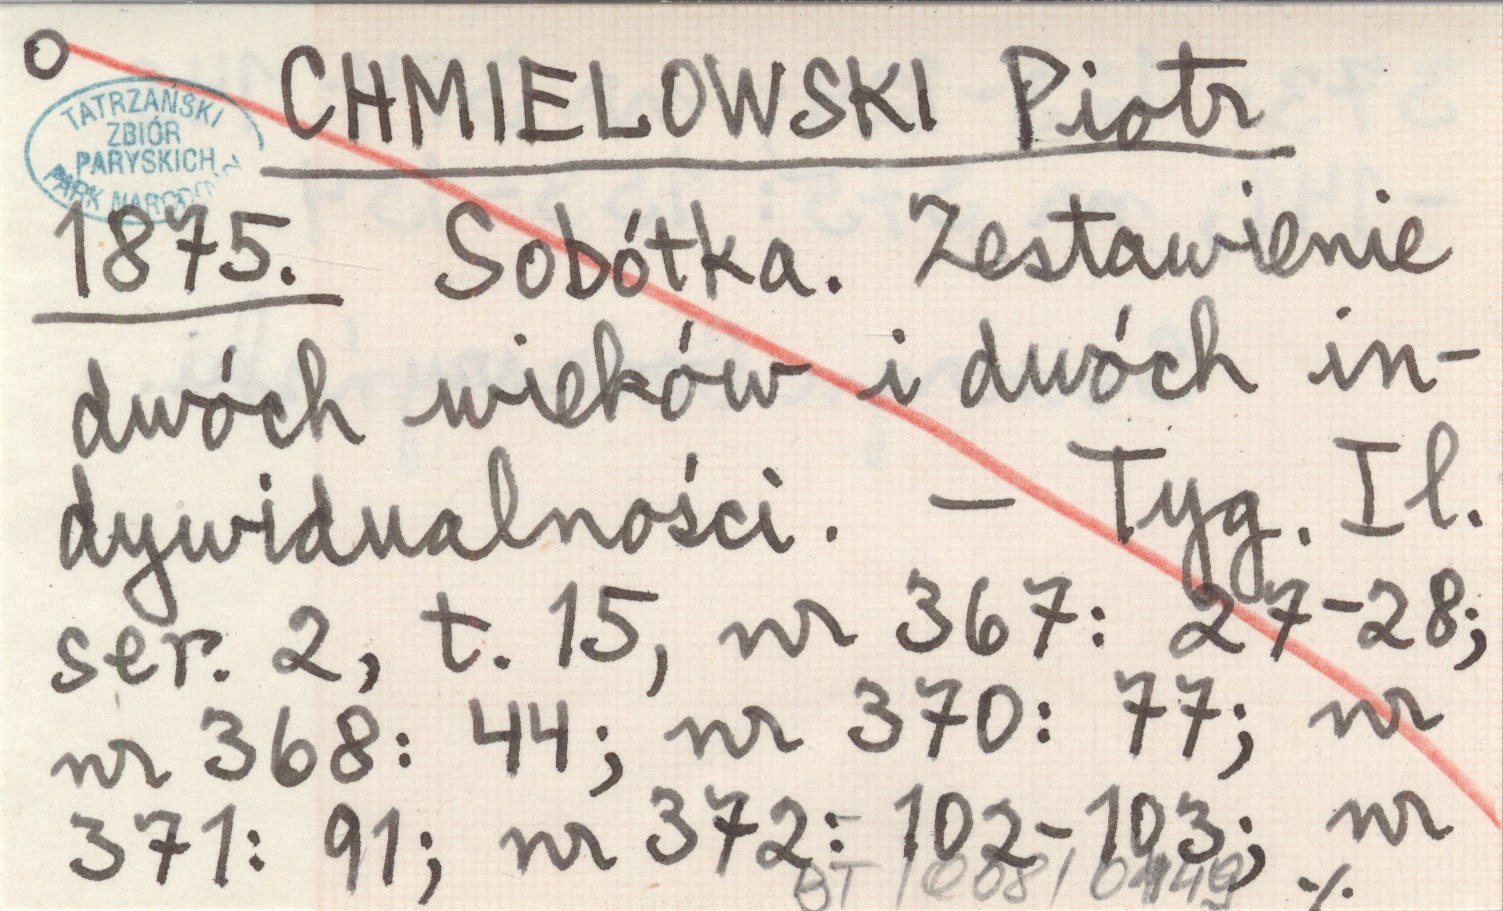 CHMIELOWSKI Piotr
TATRZAŃSKI
ZBIÓR
PARYSKICH
PARK
1875. Sobótka. Zestawienie
dwóch wieków i dwóch in-
dywidualności. — Tyg. Il.
ser. 2, t. 15, nr 367: 27-28;
nr 368: 44; nr 370: 77; nr
371: 91; nr 372: 102-103; nr
·/.